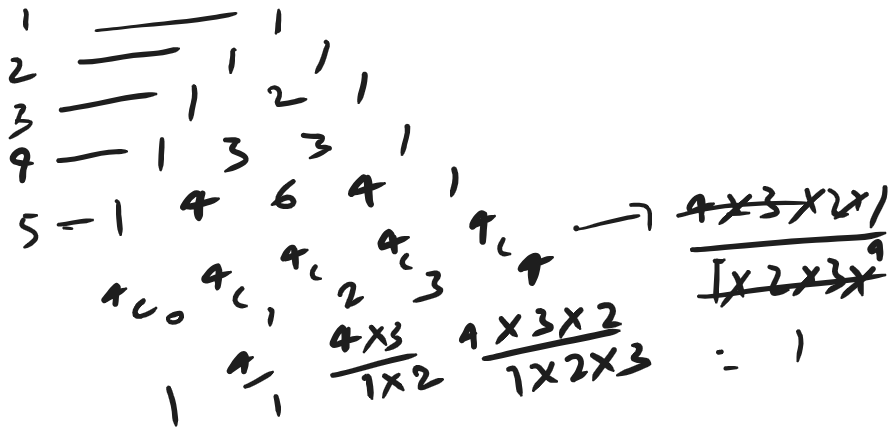 1 — 1
2 — 1 1
3 — 1 2 1
4 — 1 3 3 1
5 — 1 4 6 4 1
4C0 4C1 4C2 4C3 4C4 → 4×3×2×1 / 1×2×3×4
1 4/1 4×3/1×2 4×3×2/1×2×3 = 1